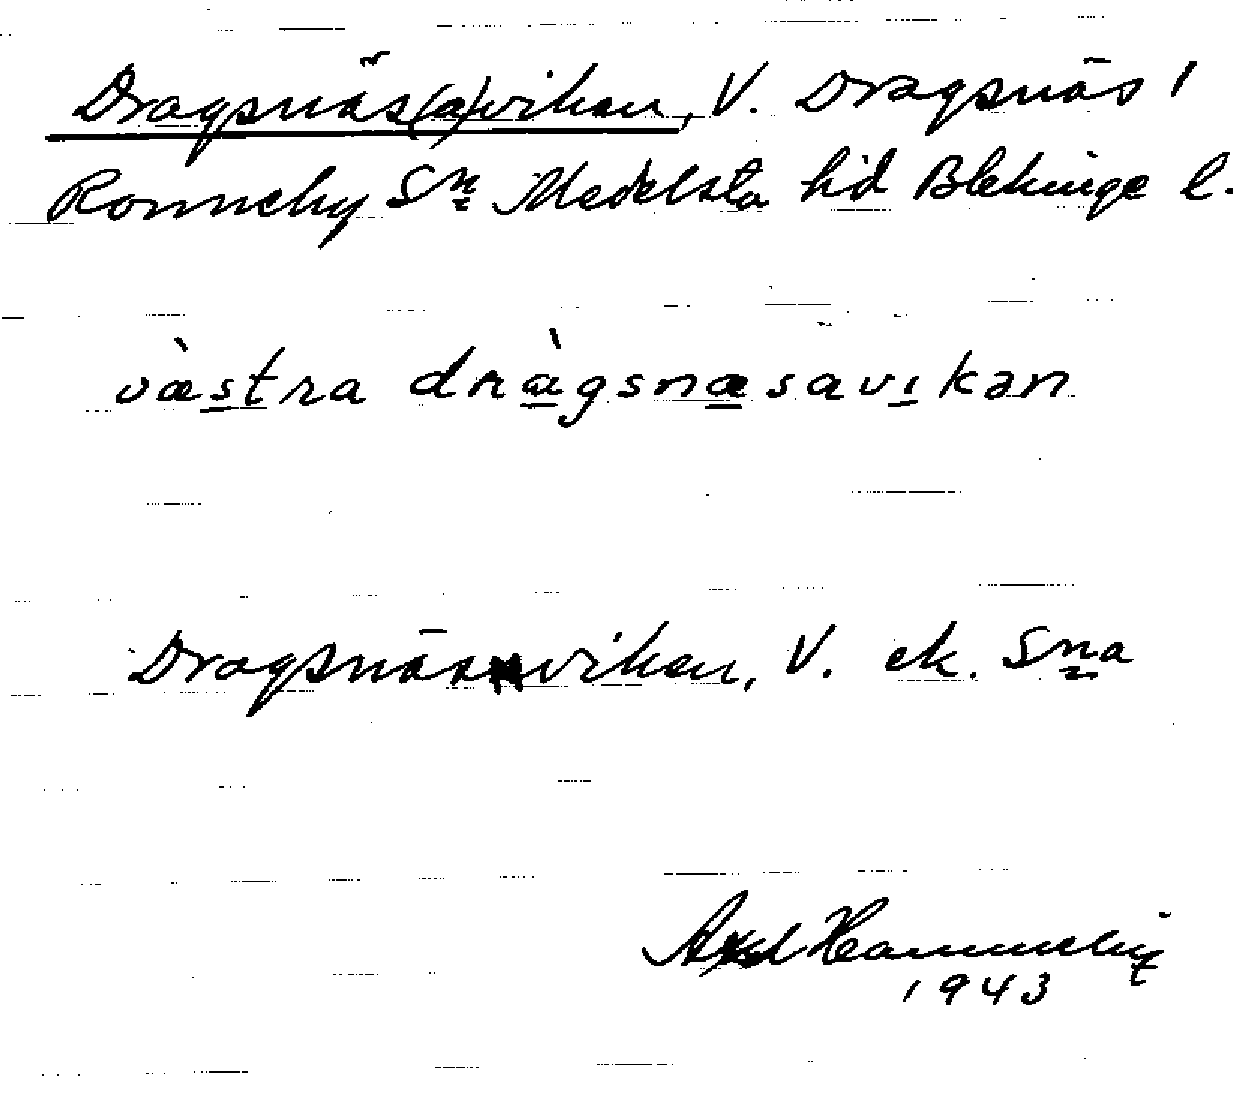 Dragsnäs(a)viken, V. Dragsnäs 1
Ronneby Sn Medelsta hd Blekinge l.
væ̀stra dràgsnæsavıkən
Dragsnäsviken, V. ek. Sna
Axel Hammelin
1943